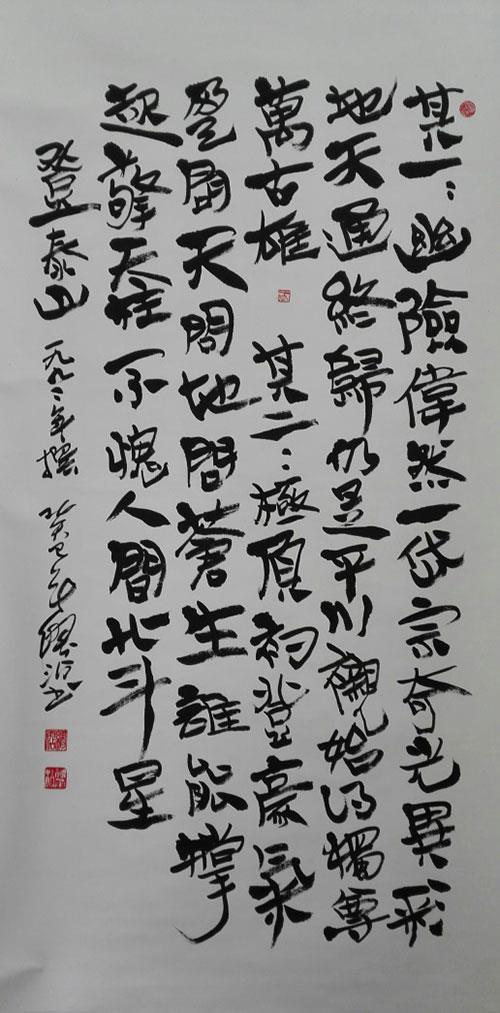 其一：幽險偉然一岱宗奇光異彩
地天通終歸仍是平川襯始得獨尊
萬古雄 其二：極頂初登豪氣
盈問天問地問蒼生誰能撑
起擎天柱不愧人間北斗星
登泰山 一九九二年撰 癸巳年